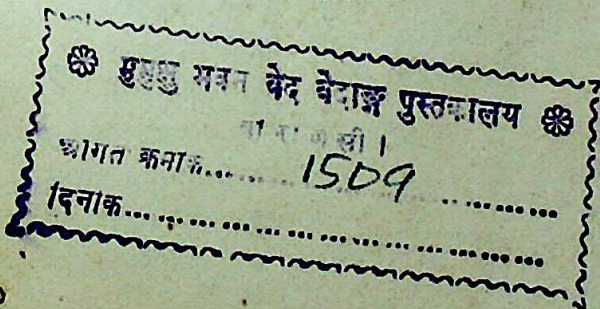 ❀ मुमुक्षु भवन वेद वेदाङ्ग पुस्तकालय ❀
वाराणसी ।
आगत क्रमांक...... 1509 ............
दिनांक....................................